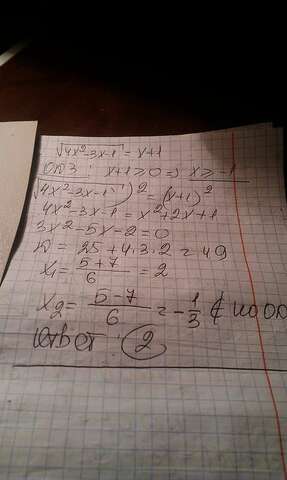 √4x²-3x-1 = x+1
ОДЗ: x+1≥0 => x≥-1
(√4x²-3x-1)² = (x+1)²
4x²-3x-1 = x²+2x+1
3x²-5x-2=0
D = 25+4·3·2 = 49
x₁ = 5+7/6 = 2
x₂ = 5-7/6 = -1/3 ∉
Ответ: 2